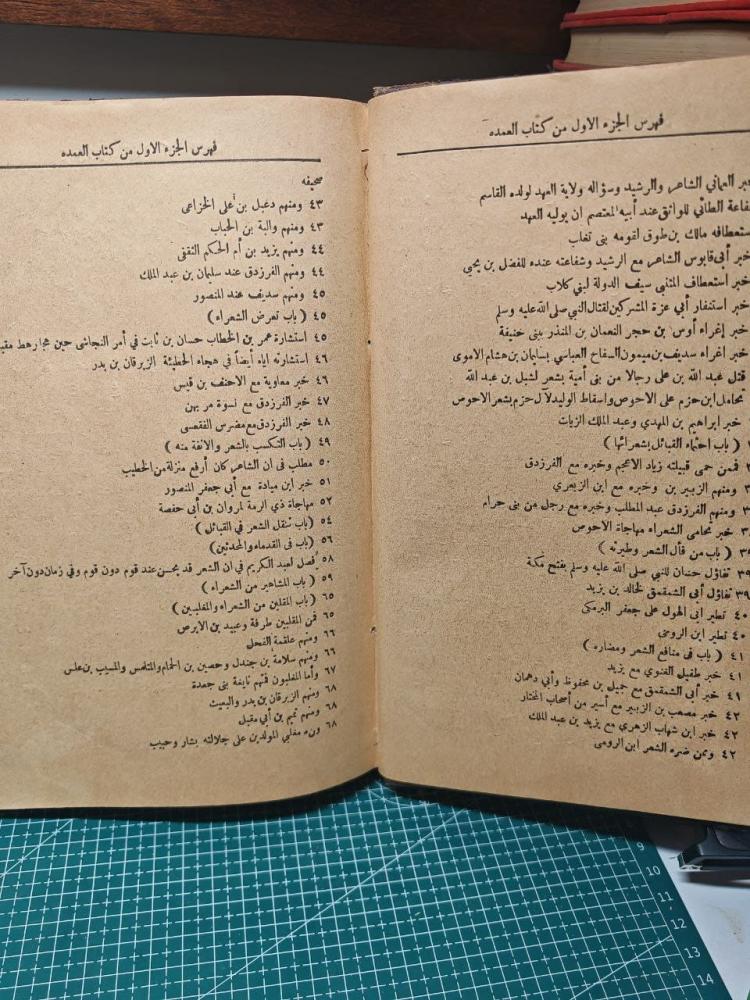 فهرس الجزء الاول من كتاب العمده
بر العماني الشاعر والرشيد وسؤاله ولاية العهد لولده القاسم
فاعة الطائي للواثق عند أبيه المعتصم ان يوليه العهد
ستعطافه مالك بن طوق لقومه بنى تغلب
خبر أبي قابوس الشاعر مع الرشيد وشفاعته عنده للفضل بن يحيى
خبر استعطاف المتنبي سيف الدولة لبني كلاب
خبر استنفار أبي عزة المشركين لقتال النبي صلى الله عليه وسلم
خبر إغراء أوس بن حجر النعمان بن المنذر ببنى حنيفة
خبر اغراء سديف بن ميمون السفاح العباسي بسليمان بن هشام الاموى
قتل عبد الله بن على رجالا من بنى أمية بشعر لشبل بن عبد الله
تحامل ابن حزم على الاحوص واسقاط الوليد لآل حزم بشعر الاحوص
خبر ابراهيم بن المهدي وعبد الملك الزيات
( باب احتماء القبائل بشعرائها )
فمن حمى قبيلته زياد الاعجم وخبره مع الفرزدق
ومنهم الزبير بن وخبره مع ابن الزبعري
ومنهم الفرزدق عبد المطلب وخبره مع رجل من بنى حرام
خبر تحامى الشعراء مهاجاة الاحوص
( باب من فأل الشعر وطيرته )
٣٩ تفاؤل حسان للنبي صلى الله عليه وسلم بفتح مكة
٣٩ تفاؤل أبي الشمقمق لخالد بن يزيد
٤٠ تطير ابى الهول على جعفر البرمكى
٤٠ تطير ابن الرومى
٤١ ( باب فى منافع الشعر ومضاره )
٤١ خبر طفيل الغنوي مع يزيد
٤١ خبر أبي الشمقمق مع جميل بن محفوظ وأبي دهمان
٤٢ خبر مصعب بن الزبير مع أسير من أصحاب المختار
٤٢ خبر ابن شهاب الزهري مع يزيد بن عبد الملك
٤٢ وممن ضره الشعر ابن الرومى
فهرس الجزء الاول من كتاب العمده
صحيفه
٤٣ ومنهم دعبل بن على الخزاعى
٤٣ ومنهم والبة بن الحباب
٤٤ ومنهم يزيد بن أم الحكم الثقفى
٤٤ ومنهم الفرزدق عند سليمان بن عبد الملك
٤٥ ومنهم سديف عند المنصور
٤٥ ( باب تعرض الشعراء )
٤٥ استشارة عمر بن الخطاب حسان بن ثابت في أمر النجاشى حين هجا رهط مقب
٤٦ استشارته اياه أيضاً فى هجاء الحطيئة الزبرقان بن بدر
٤٦ خبر معاوية مع الاحنف بن قيس
٤٧ خبر الفرزدق مع نسوة مر بهن
٤٨ خبر الفرزدق مع مضرس الفقعسى
٤٩ ( باب التكسب بالشعر والانفة منه )
٥٠ مطلب فى ان الشاعر كان أرفع منزلة من الخطيب
٥١ خبر ابن ميادة مع أبي جعفر المنصور
٥٢ مهاجاة ذى الرمة لمروان بن أبى حفصة
٥٤ (باب تنقل الشعر في القبائل )
٥٦ (باب فى القدماء والمحدثين)
٥٨ فصل لعبد الكريم في ان الشعر قد يحسن عند قوم دون قوم وفي زمان دون آخر
٥٩ ( باب المشاهير من الشعراء )
٦٥ (باب المقلين من الشعراء والمغلبين )
٦٥ فمن المقلين طرفة وعبيد بن الابرص
٦٦ ومنهم علقمة الفحل
٦٦ ومنهم سلامة بن جندل وحصين بن الحمام والمتلمس والمسيب بن علس
٦٧ وأما المغلبون فمنهم نابغة بنى جعدة
٦٨ ومنهم الزبرقان بن بدر والبعيث
٦٨ ومنهم تميم بن أبي مقبل
٦٨ ومن مغلبي المولدين على جلالته بشار وحبيب